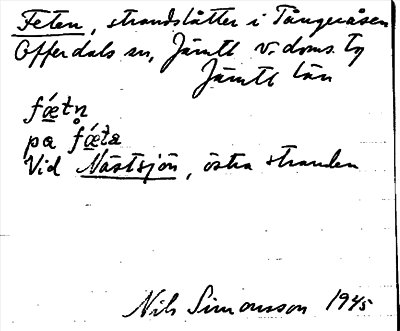 Feten, strandslåtter i Tångeråsen
Offerdals sn, Jämtl v. doms. tg
Jämtl län
fǽtn̥
på fǽta
Vid Nästsjön, östra stranden
Nils Simonsson 1945